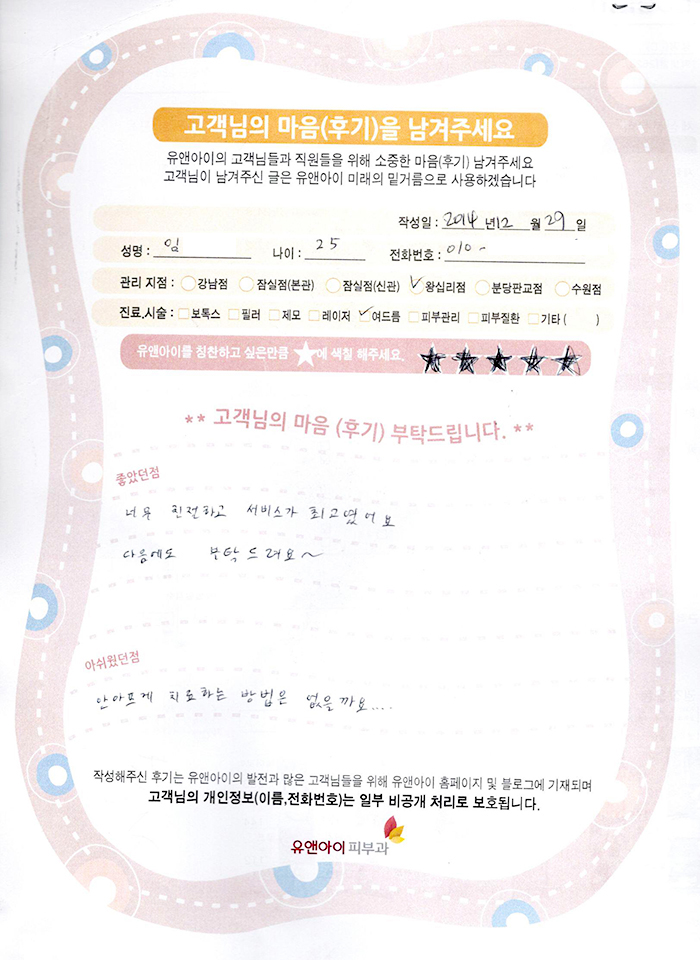 고객님의 마음(후기)을 남겨주세요
유앤아이의 고객님들과 직원들을 위해 소중한 마음(후기) 남겨주세요
고객님이 남겨주신 글은 유앤아이 미래의 밑거름으로 사용하겠습니다
작성일 : 2014 년 12 월 29 일
성명 : 임 나이 : 25 전화번호 : 010 -
관리 지점 : 강남점 잠실점(본관) 잠실점(신관) 왕십리점 분당판교점 수원점
진료,시술 : 보톡스 필러 제모 레이저 여드름 피부관리 피부질환 기타 ( )
유앤아이를 칭찬하고 싶은만큼 ★에 색칠 해주세요.
** 고객님의 마음 (후기) 부탁드립니다. **
좋았던점
너무 친절하고 서비스가 최고였어요
다음에도 부탁드려요~
아쉬웠던점
안아프게 치료하는 방법은 없을까요....
작성해주신 후기는 유앤아이의 발전과 많은 고객님들을 위해 유앤아이 홈페이지 및 블로그에 기재되며
고객님의 개인정보(이름,전화번호)는 일부 비공개 처리로 보호됩니다.
유앤아이 피부과